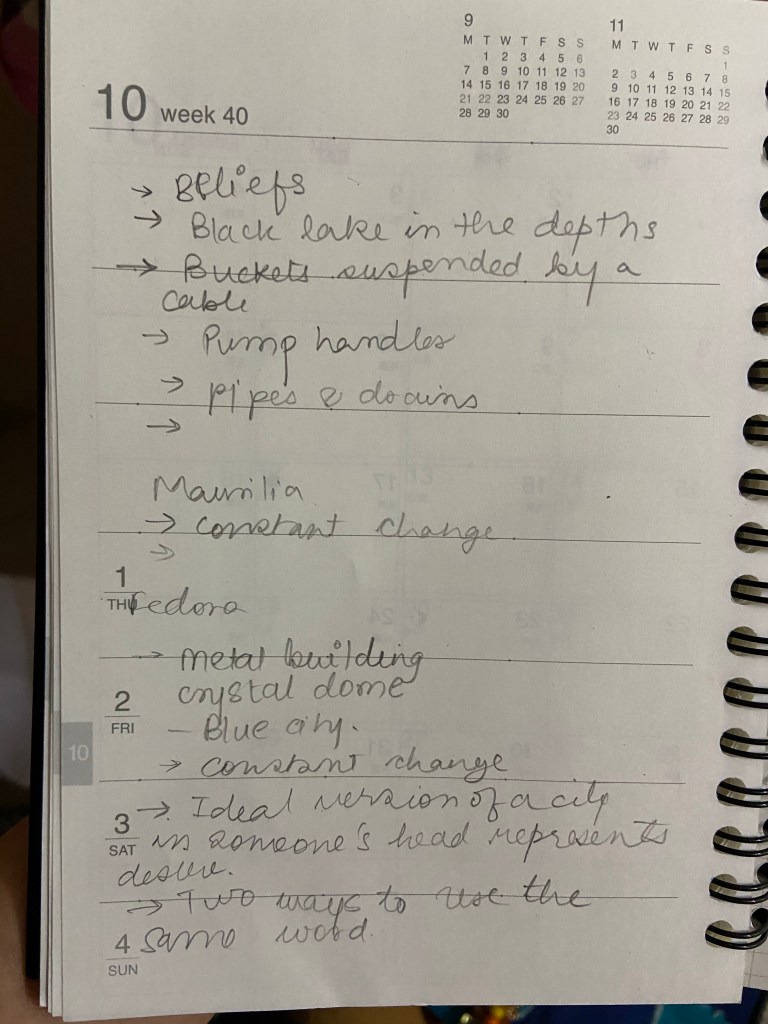 9
M T W T F S S
1 2 3 4 5 6
7 8 9 10 11 12 13
14 15 16 17 18 19 20
21 22 23 24 25 26 27
28 29 30
11
M T W T F S S
1
2 3 4 5 6 7 8
9 10 11 12 13 14 15
16 17 18 19 20 21 22
23 24 25 26 27 28 29
30
10 week 40
→ Beliefs
→ Black lake in the depths
→ Buckets suspended by a
cable
→ Pump handles
→ pipes & drains
→
Maurilia
→ constant change.
→
1
THU
Fedora
→ metal building
crystal dome
2
FRI
– Blue city.
10
→ constant change
→ Ideal version of a city
3
SAT
in someone's head represents
desire.
→ Two ways to use the
4
SUN
same word.